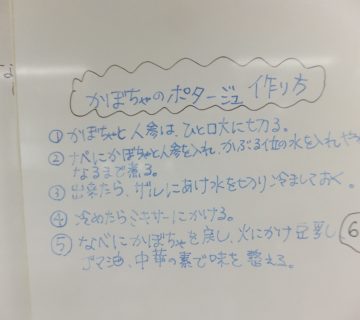 かぼちゃのポタージュ 作り方
① かぼちゃと人参は、ひと口大に切る。
② ナベにかぼちゃと人参を入れ、かぶる位の水を入れや
なるまで煮る。
③ 出来たら、ザルにあけ水を切り冷ましておく。
④ 冷めたらミキサーにかける。
⑤ なべにかぼちゃを戻し、火にかけ豆乳し
ゴマ油、中華の素で味を整える。
⑥